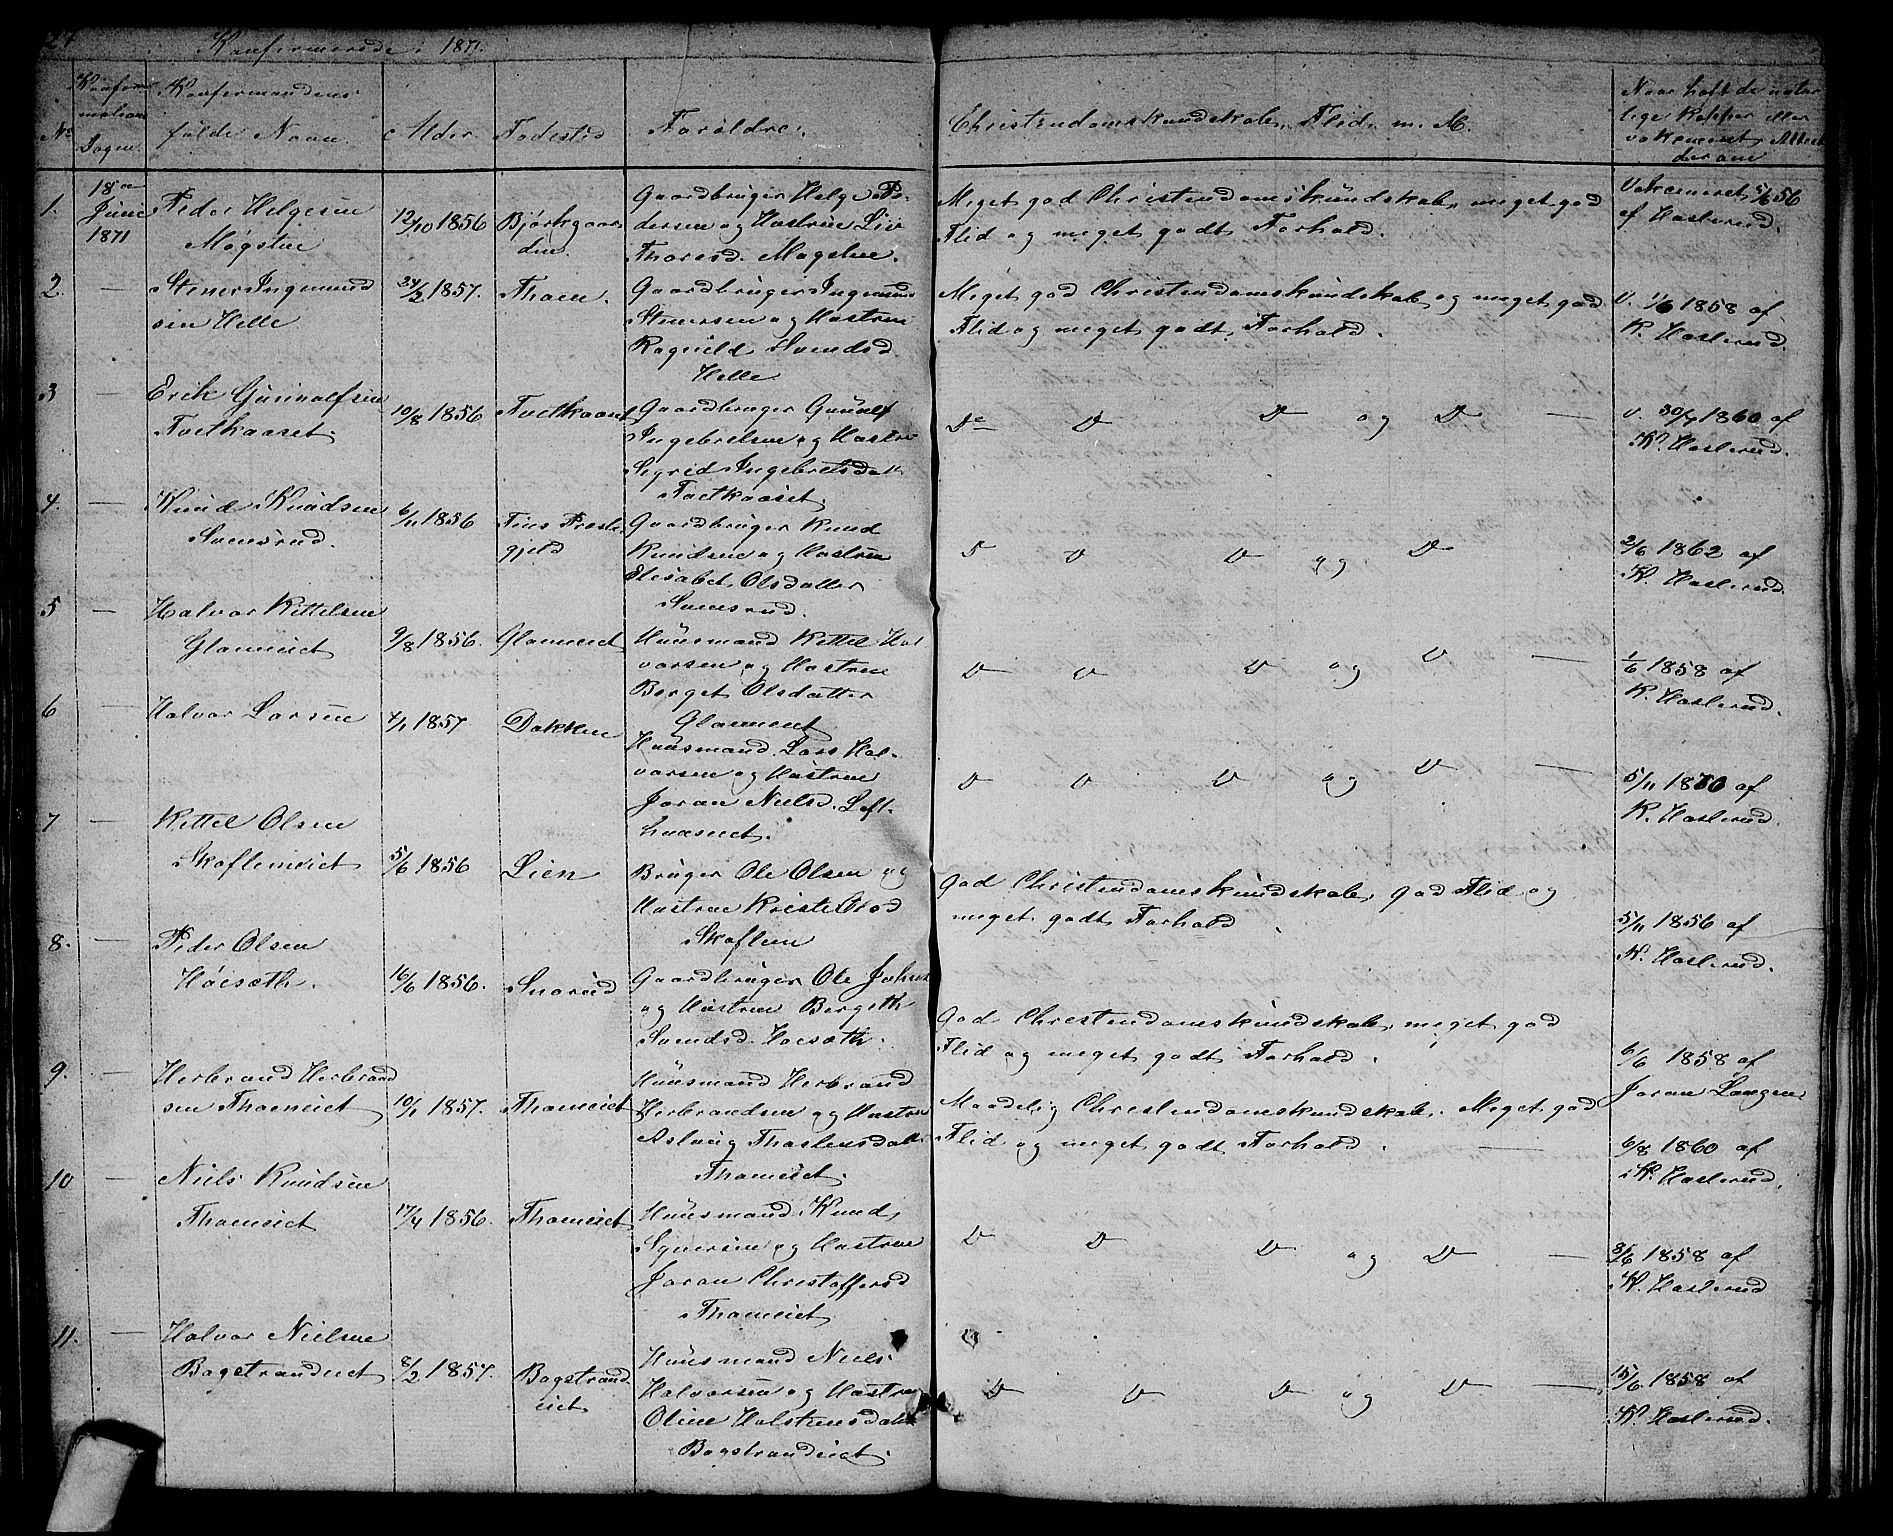 Konfirmerede i 1871.
No
Konfirmations Dagen
Konfirmandens fulde Navn.
Alder.
Fødested
Forældre.
Christendomskundskab, Flid m. M.
Naar havt de naturlige Kopper eller vakcineret, Attest derom
1.
18de Juni 1871
Peder Helgesen
Møgstue
12/10 1856
Bjørkgaarden.
Gaardbruger Helge Pedersen og Hustrue Liv
Thoresd. Møgstue.
Meget god Christendomskundskab, meget god
Flid og meget godt Forhold.
Vakcineret 5/6 56
af Haslerud.
2.
Stener Ingemundsen Helle
24/3 1857.
Thoen.
Gaardbruger Ingemund
Stenersen og Hustrue
Ragnild Svendsd.
Helle
Meget god Christendomskundskab og meget god
Flid og meget godt Forhold.
V. 1/6 1858 af
K. Haslerud.
3
Erik Gunnulfsen
Tvetkaaset.
10/8 1856
Tvetkaaset
Gaardbruger Gunulf
Ingebretsen og Hustrue
Sigrid Ingebretsdatt
Tvetkaaset.
Do D D og D —
V. 30/7 1860 af
K. Haslerud.
4.
Knud Knudsen
Svensrud.
6/11 1856
Fins Prestegjeld
Gaardbruger Knud
Knudsen og Hustrue
Elisabet Olsdatter
Svensrud.
D D D og D
2/6 1862 af
K. Haslerud.
5
Halvor Kittelsen
Glameiet
9/8 1856.
Glameiet
Huusmand Kittel Halvorsen og Hustrue
Berget Olsdatter
Glameiet
D D D og D —
1/6 1858 af
K. Haslerud.
6
Halvor Larsen
7/1 1857
Dokken
Huusmand Lars Halvorsen og Hustrue
Joran Nielsd. Lofthuuseiet.
D D D og D —
5/11 1870 af
K. Haslerud.
7
Kittel Olsen
Skafleneiet
5/6 1856
Lien
Bruger Ole Olsen og
Hustrue Kristi Olsd
Skaflem
God Christendomskundskab, god Flid og
meget godt Forhold.
5/11 1856 af
K. Haslerud.
8.
Peder Olsen
Høisæth.
16/6 1856.
Snorud
Gaardbruger Ole Johns
og Hustrue Bergith
Svendsd. Høisæth.
God Christendomskundskab, meget god
Flid og meget godt Forhold.
6/6 1858 af
Joran Langen.
9.
Herbrand Herbrandsen Thoeneiet
10/1 1857.
Thoeneiet
Huusmand Herbrand
Herbrandsen og Hustrue
Aslaug Thorstensdatt
Thoeneiet.
Maadelig Christendomskundskab. Meget god
Flid og meget godt Forhold. —
6/8 1860 af
K. Haslerud.
10
Niels Knudsen
Thoeneiet
17/4 1856.
Thoeneiet
Huusmand Knud
Syversen og Hustrue
Joran Christoffersd
Thoeneiet
D D D og D —
8/6 1858 af
K. Haslerud
11.
Halvor Nielsen
Bagstrandeiet
8/2 1857.
Bagstrandeiet
Huusmand Niels
Halvorsen og Hustrue
Oline Halstensdatt
Bagstrandeiet.
D D D og D —
15/6 1858 af
K. Haslerud.